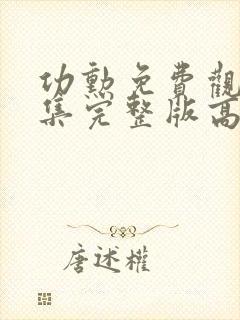 功勳免費觀
集完整版高
唐述權